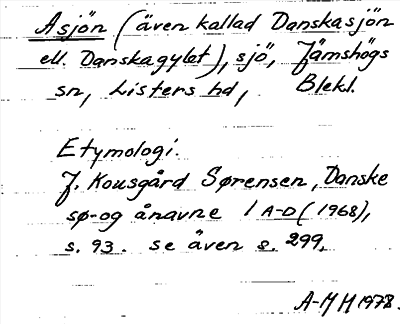 Asjön (även kallad Danskasjön
ell. Danskagylet), sjö, Jämshögs
sn, Listers hd, Blekl.
Etymologi.
J. Kousgård Sørensen, Danske
sø- og ånavne 1 A-D (1968),
s. 93. se även s. 299.
A-M H 1978.